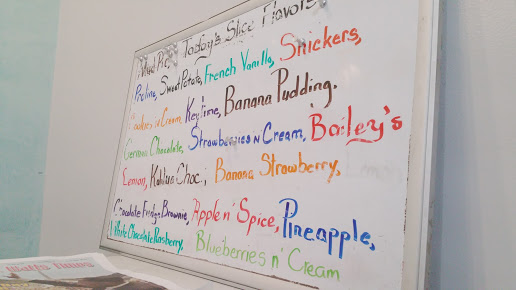 Today's Slice Flavors
Praline, Sweet Potato, French Vanilla, Snickers,
Cookies n' Cream, Key Lime, Banana Pudding.
German Chocolate, Strawberries n' Cream, Bailey's
Lemon, Kahlua Choc., Banana Strawberry,
Chocolate Fudge Brownie, Apple n' Spice, Pineapple,
White Chocolate Raspberry, Blueberries n' Cream
Watts